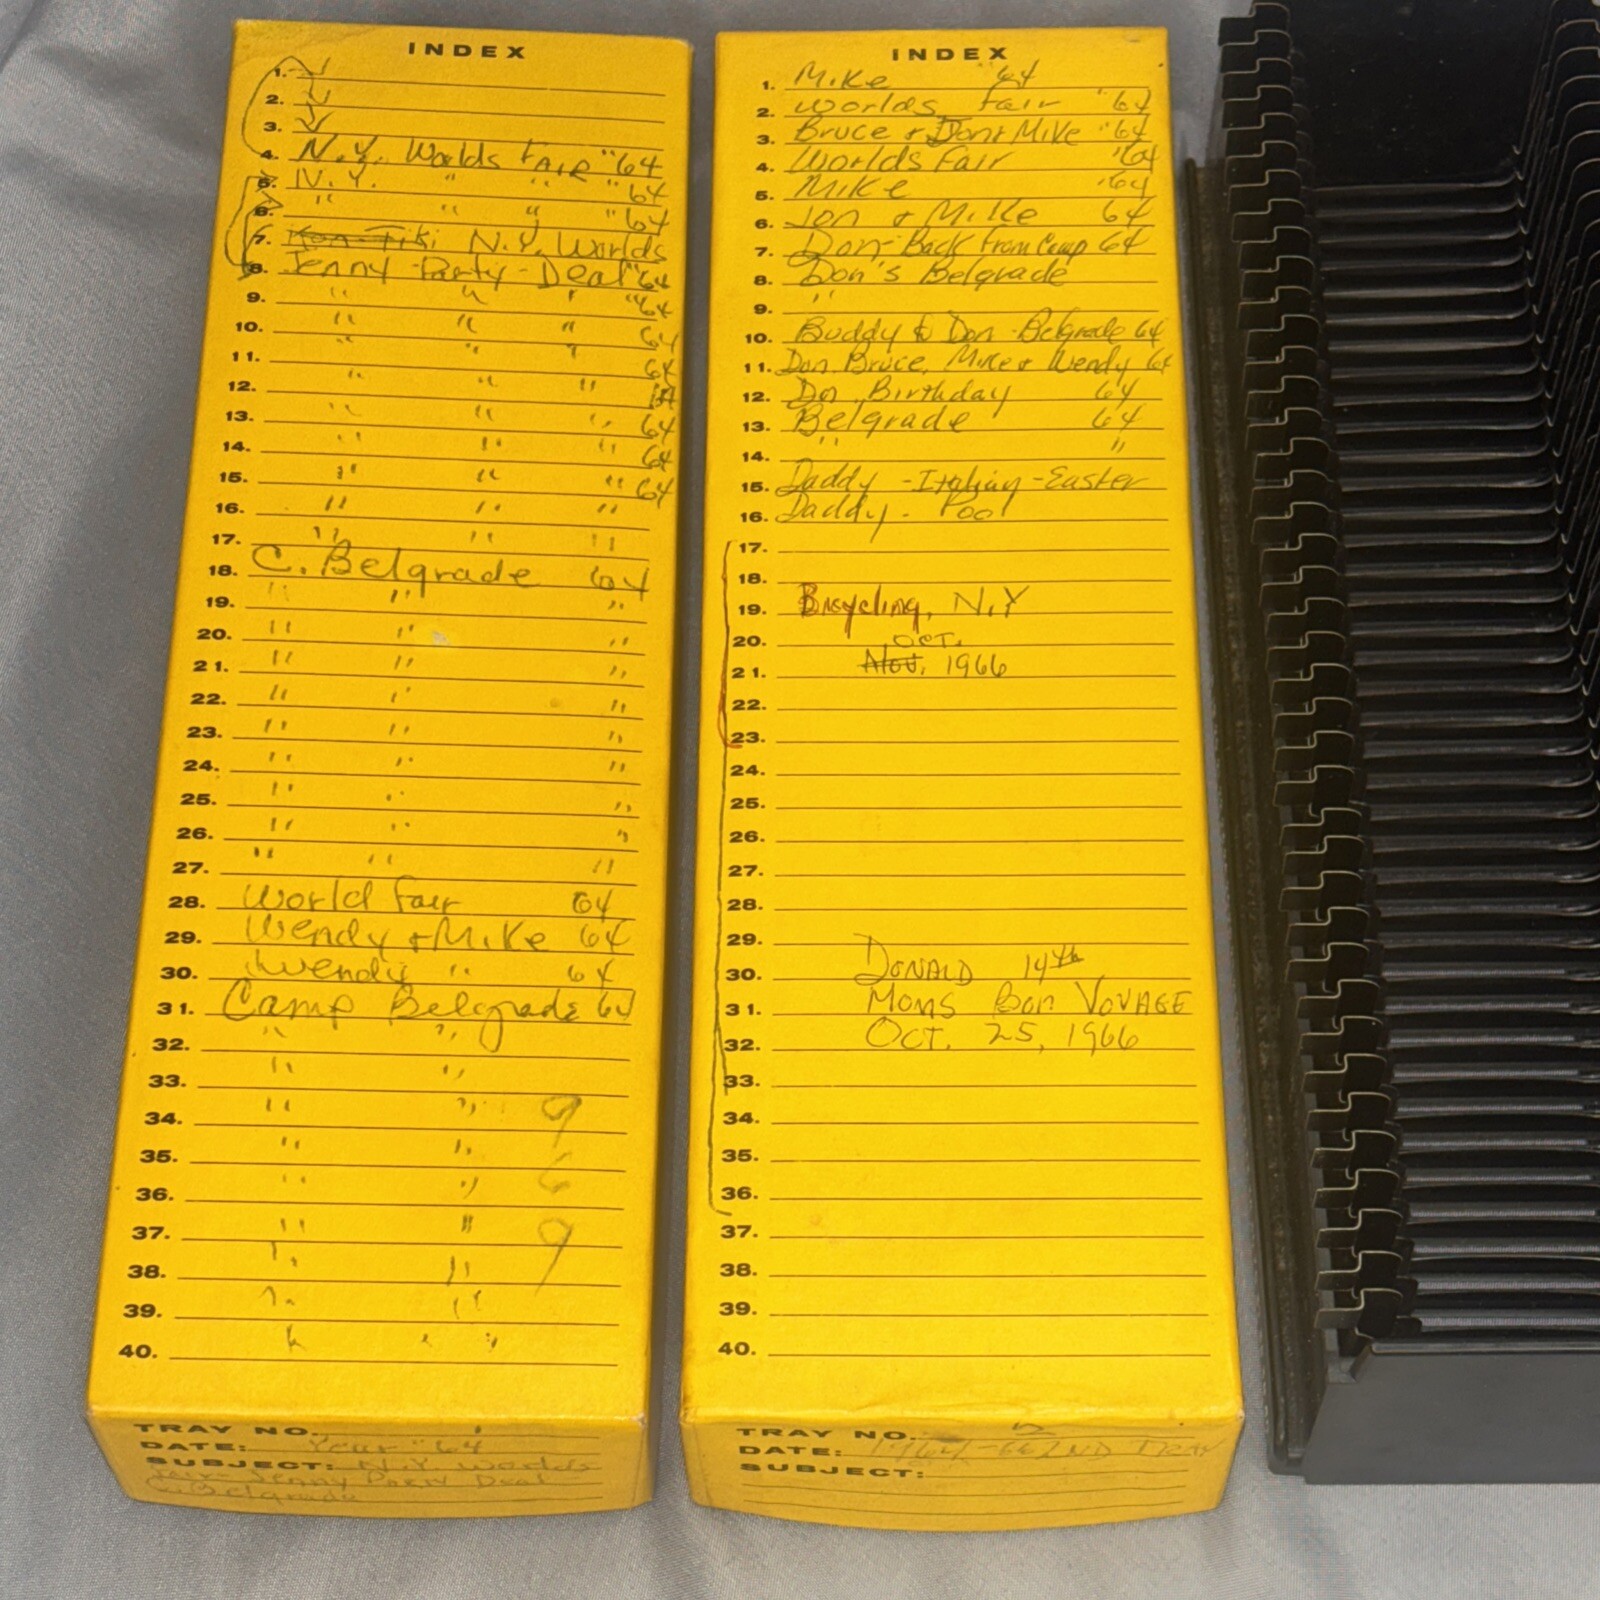 INDEX
1.
2.
3.
4. N.Y. Worlds Fair "64
5. N.Y. " " "64
6. " " " "64
7. Kon-Tiki N.Y. Worlds
8. Jenny-Party-Deal "64
9. " " " "64
10. " " " 64
11. " " " 64
12. " " "
13. " " " 64
14. " " " 64
15. " " " 64
16. " " "
17. " " "
18. C. Belgrade 64
19. " " "
20. " " "
21. " " "
22. " " "
23. " " "
24. " " "
25. " " "
26. " " "
27. " " "
28. World Fair 64
29. Wendy + Mike 64
30. Wendy " 64
31. Camp Belgrade 64
32. " "
33. " "
34. " " 9
35. " "
36. " " 6
37. " " 9
38. " "
39. " "
40. " "
TRAY NO. 1
DATE: Year "64
SUBJECT: N.Y. Worlds
Fair - Jenny Deal
C. Belgrade
INDEX
1. Mike "64
2. Worlds Fair "64
3. Bruce + Don + Mike "64
4. Worlds Fair "64
5. Mike "64
6. Jon + Mike 64
7. Don - Back From Camp 64
8. Don's Belgrade
9. "
10. Buddy & Don - Belgrade 64
11. Don, Bruce, Mike + Wendy 64
12. Don Birthday 64
13. Belgrade 64
14. " "
15. Daddy - Italian - Easter
16. Daddy - Pool
17.
18.
19. Bicycling, N.Y
20. OCT.
21. Nov. 1966
22.
23.
24.
25.
26.
27.
28.
29.
30. DONALD 14th
31. MOMS BON VOYAGE
32. OCT. 25, 1966
33.
34.
35.
36.
37.
38.
39.
40.
TRAY NO. 2
DATE: 1964-66 2ND TRAY
SUBJECT: